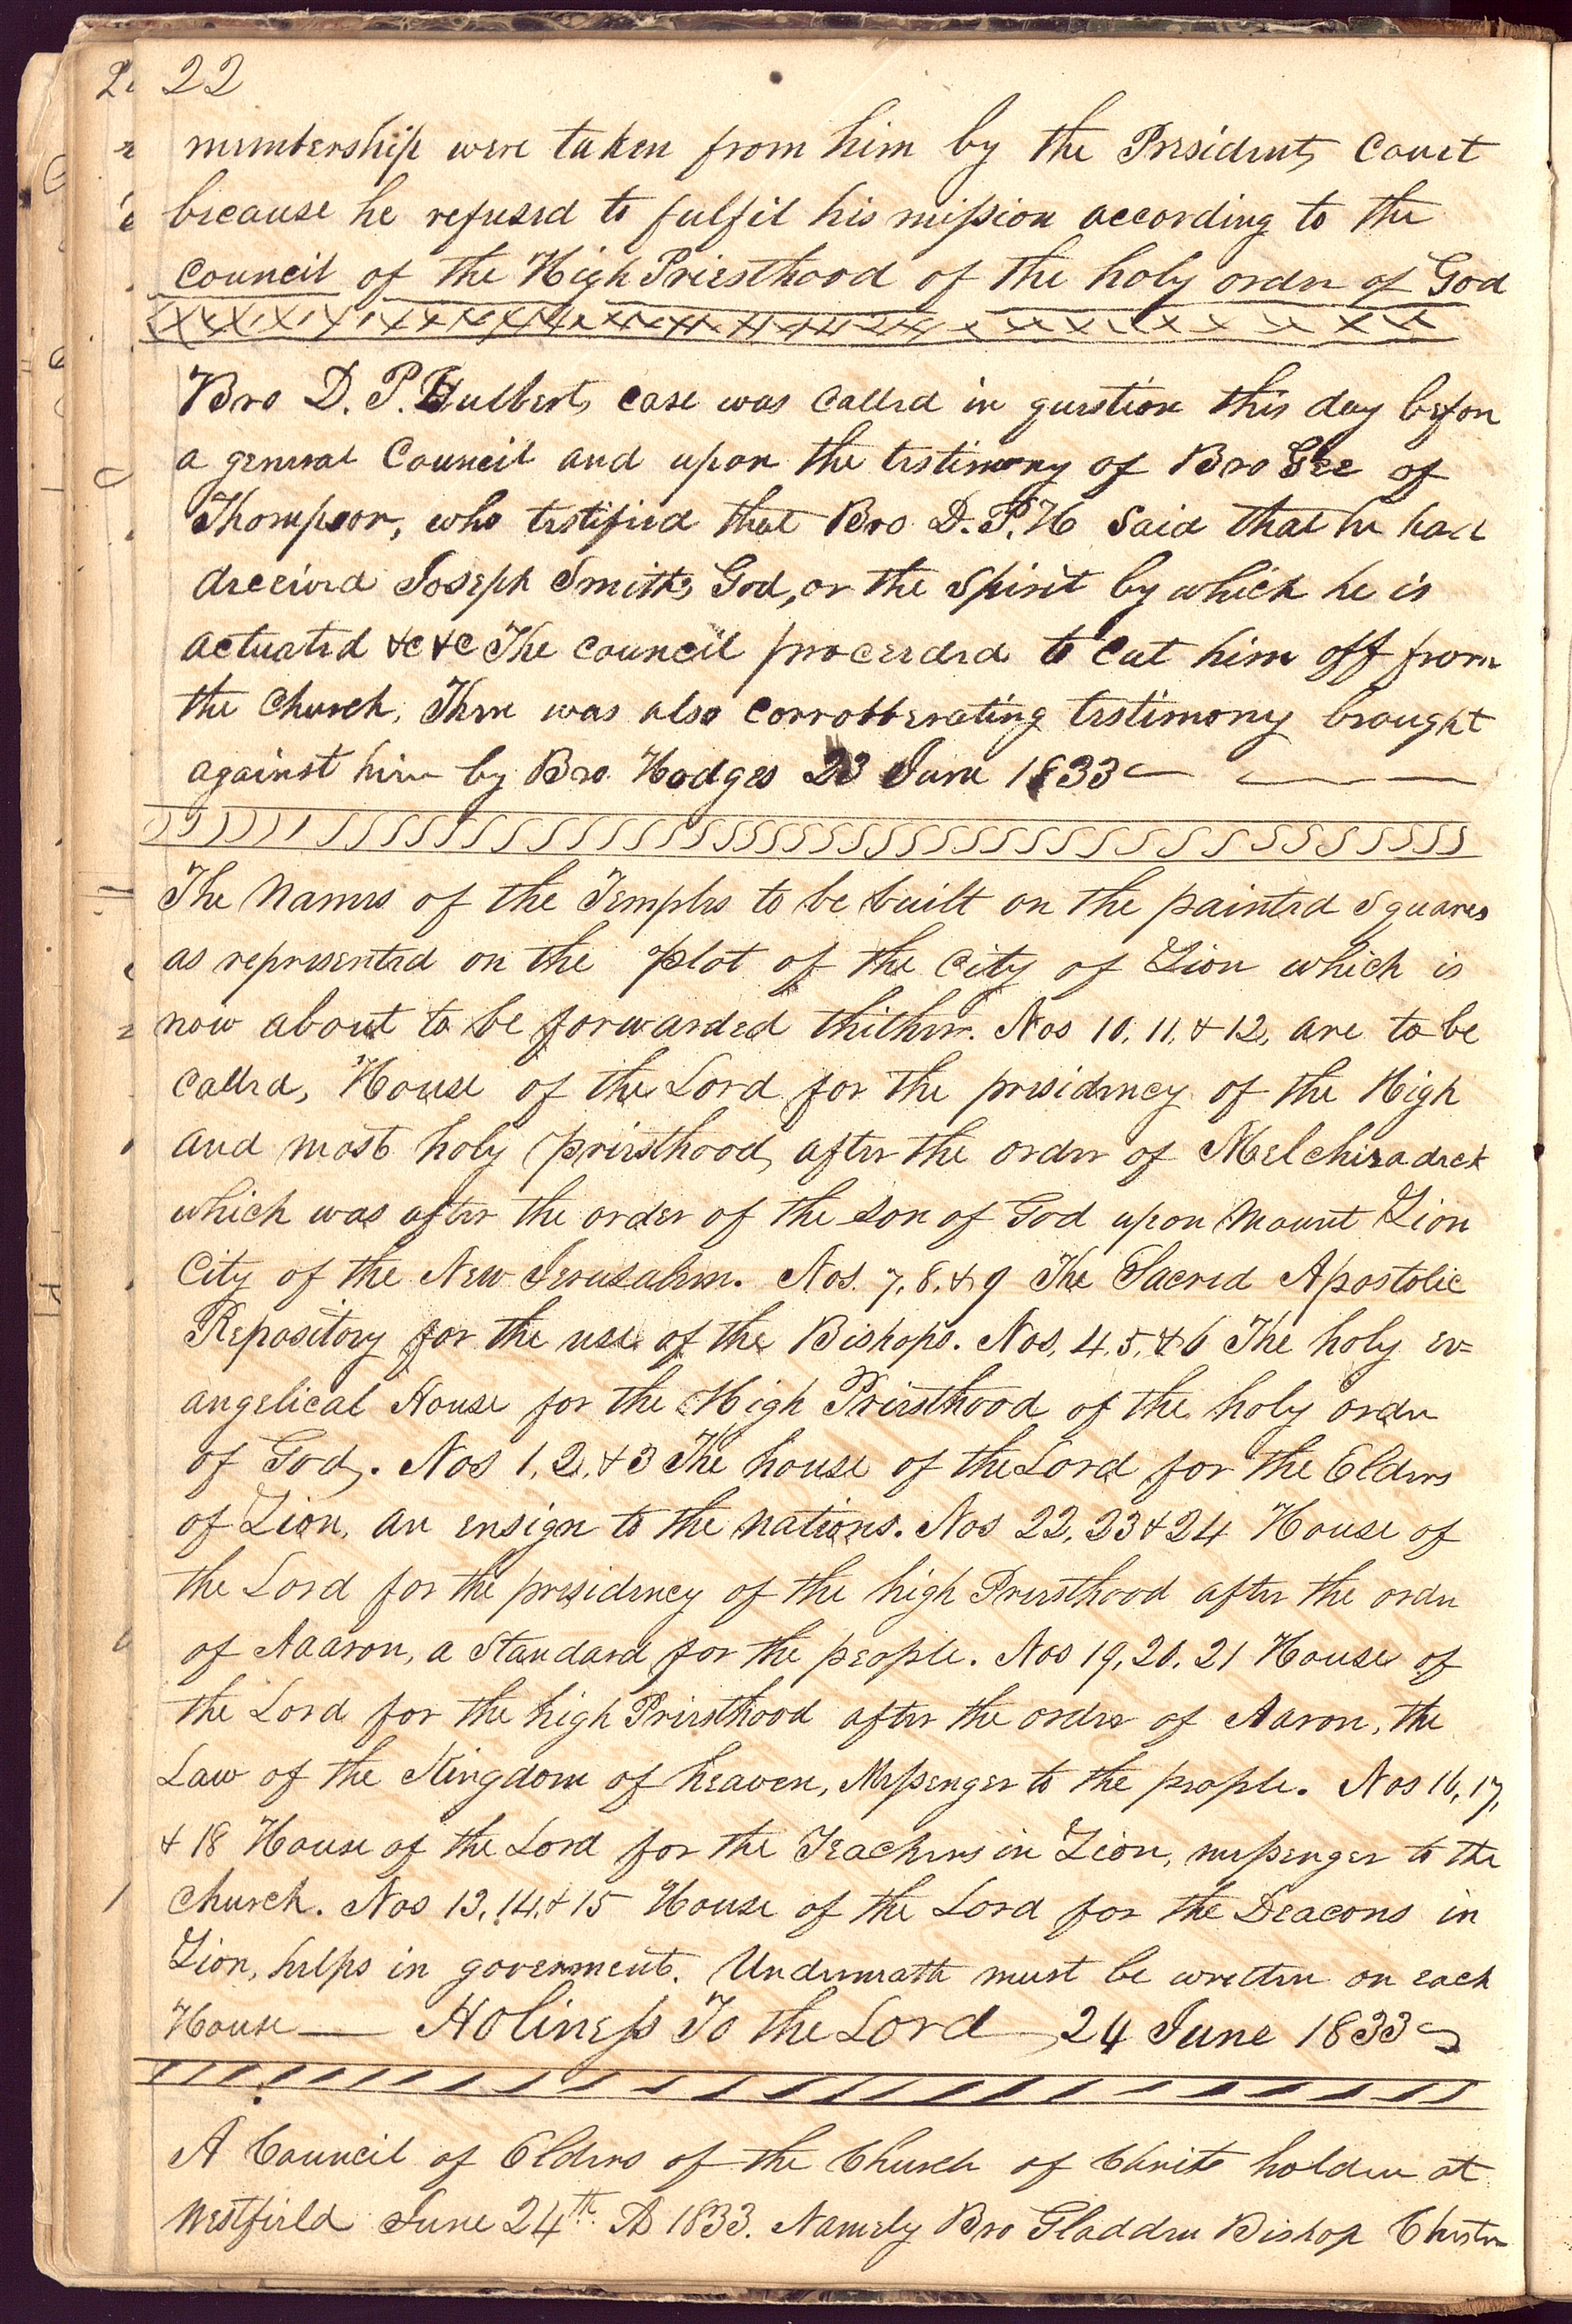 22
membership were taken from him by the Presidents Court
because he refused to fulfil his mission according to the
Council of the High Priesthood of the holy order of God
Bro D. P. Hulberts case was called in question this day before
a general Council and upon the testimony of Bro Gee of
Thompson, who testified that Bro D. P. H said that he had
deceived Joseph Smith's God, or the Spirit by which he is
actuated &c &c The council proceeded to cut him off from
the church, There was also corrobberating testimony brought
against him by Bro Hodges 23 June 1833
The names of the Temples to be built on the painted Squares
as represented on the plot of the City of Zion which is
now about to be forwarded thither. Nos 10, 11, & 12, are to be
called, House of the Lord for the presidency of the High
and most holy priesthood, after the order of Melchizadeck
which was after the order of the son of God upon Mount Zion
City of the New Jerusalem. Nos. 7, 8, & 9 The Sacred Apostolic
Repository for the use of the Bishops. Nos, 4, 5, & 6 The holy ev=
angelical House for the High Priesthood of the holy order
of God,. Nos 1, 2, & 3 The house of the Lord for the Elders
of Zion, an ensign to the nations. Nos 22, 23 & 24 House of
the Lord for the presidency of the high Priesthood after the order
of Aaaron, a Standard for the people. Nos 19, 20, 21 House of
the Lord for the high Priesthood after the order of Aaron, the
Law of the Kingdom of heaven, Messenger to the people. Nos 16, 17,
& 18 House of the Lord for the Teachers in Zion, messenger to the
church. Nos 13, 14, & 15 House of the Lord for the Deacons in
Zion, helps in goverment. Underneath must be written on each
House — Holiness To the Lord — 24 June 1833
A Council of Elders of the Church of Christ holden at
Westfield June 24th AD 1833. Namely Bro Gladden Bishop Chester